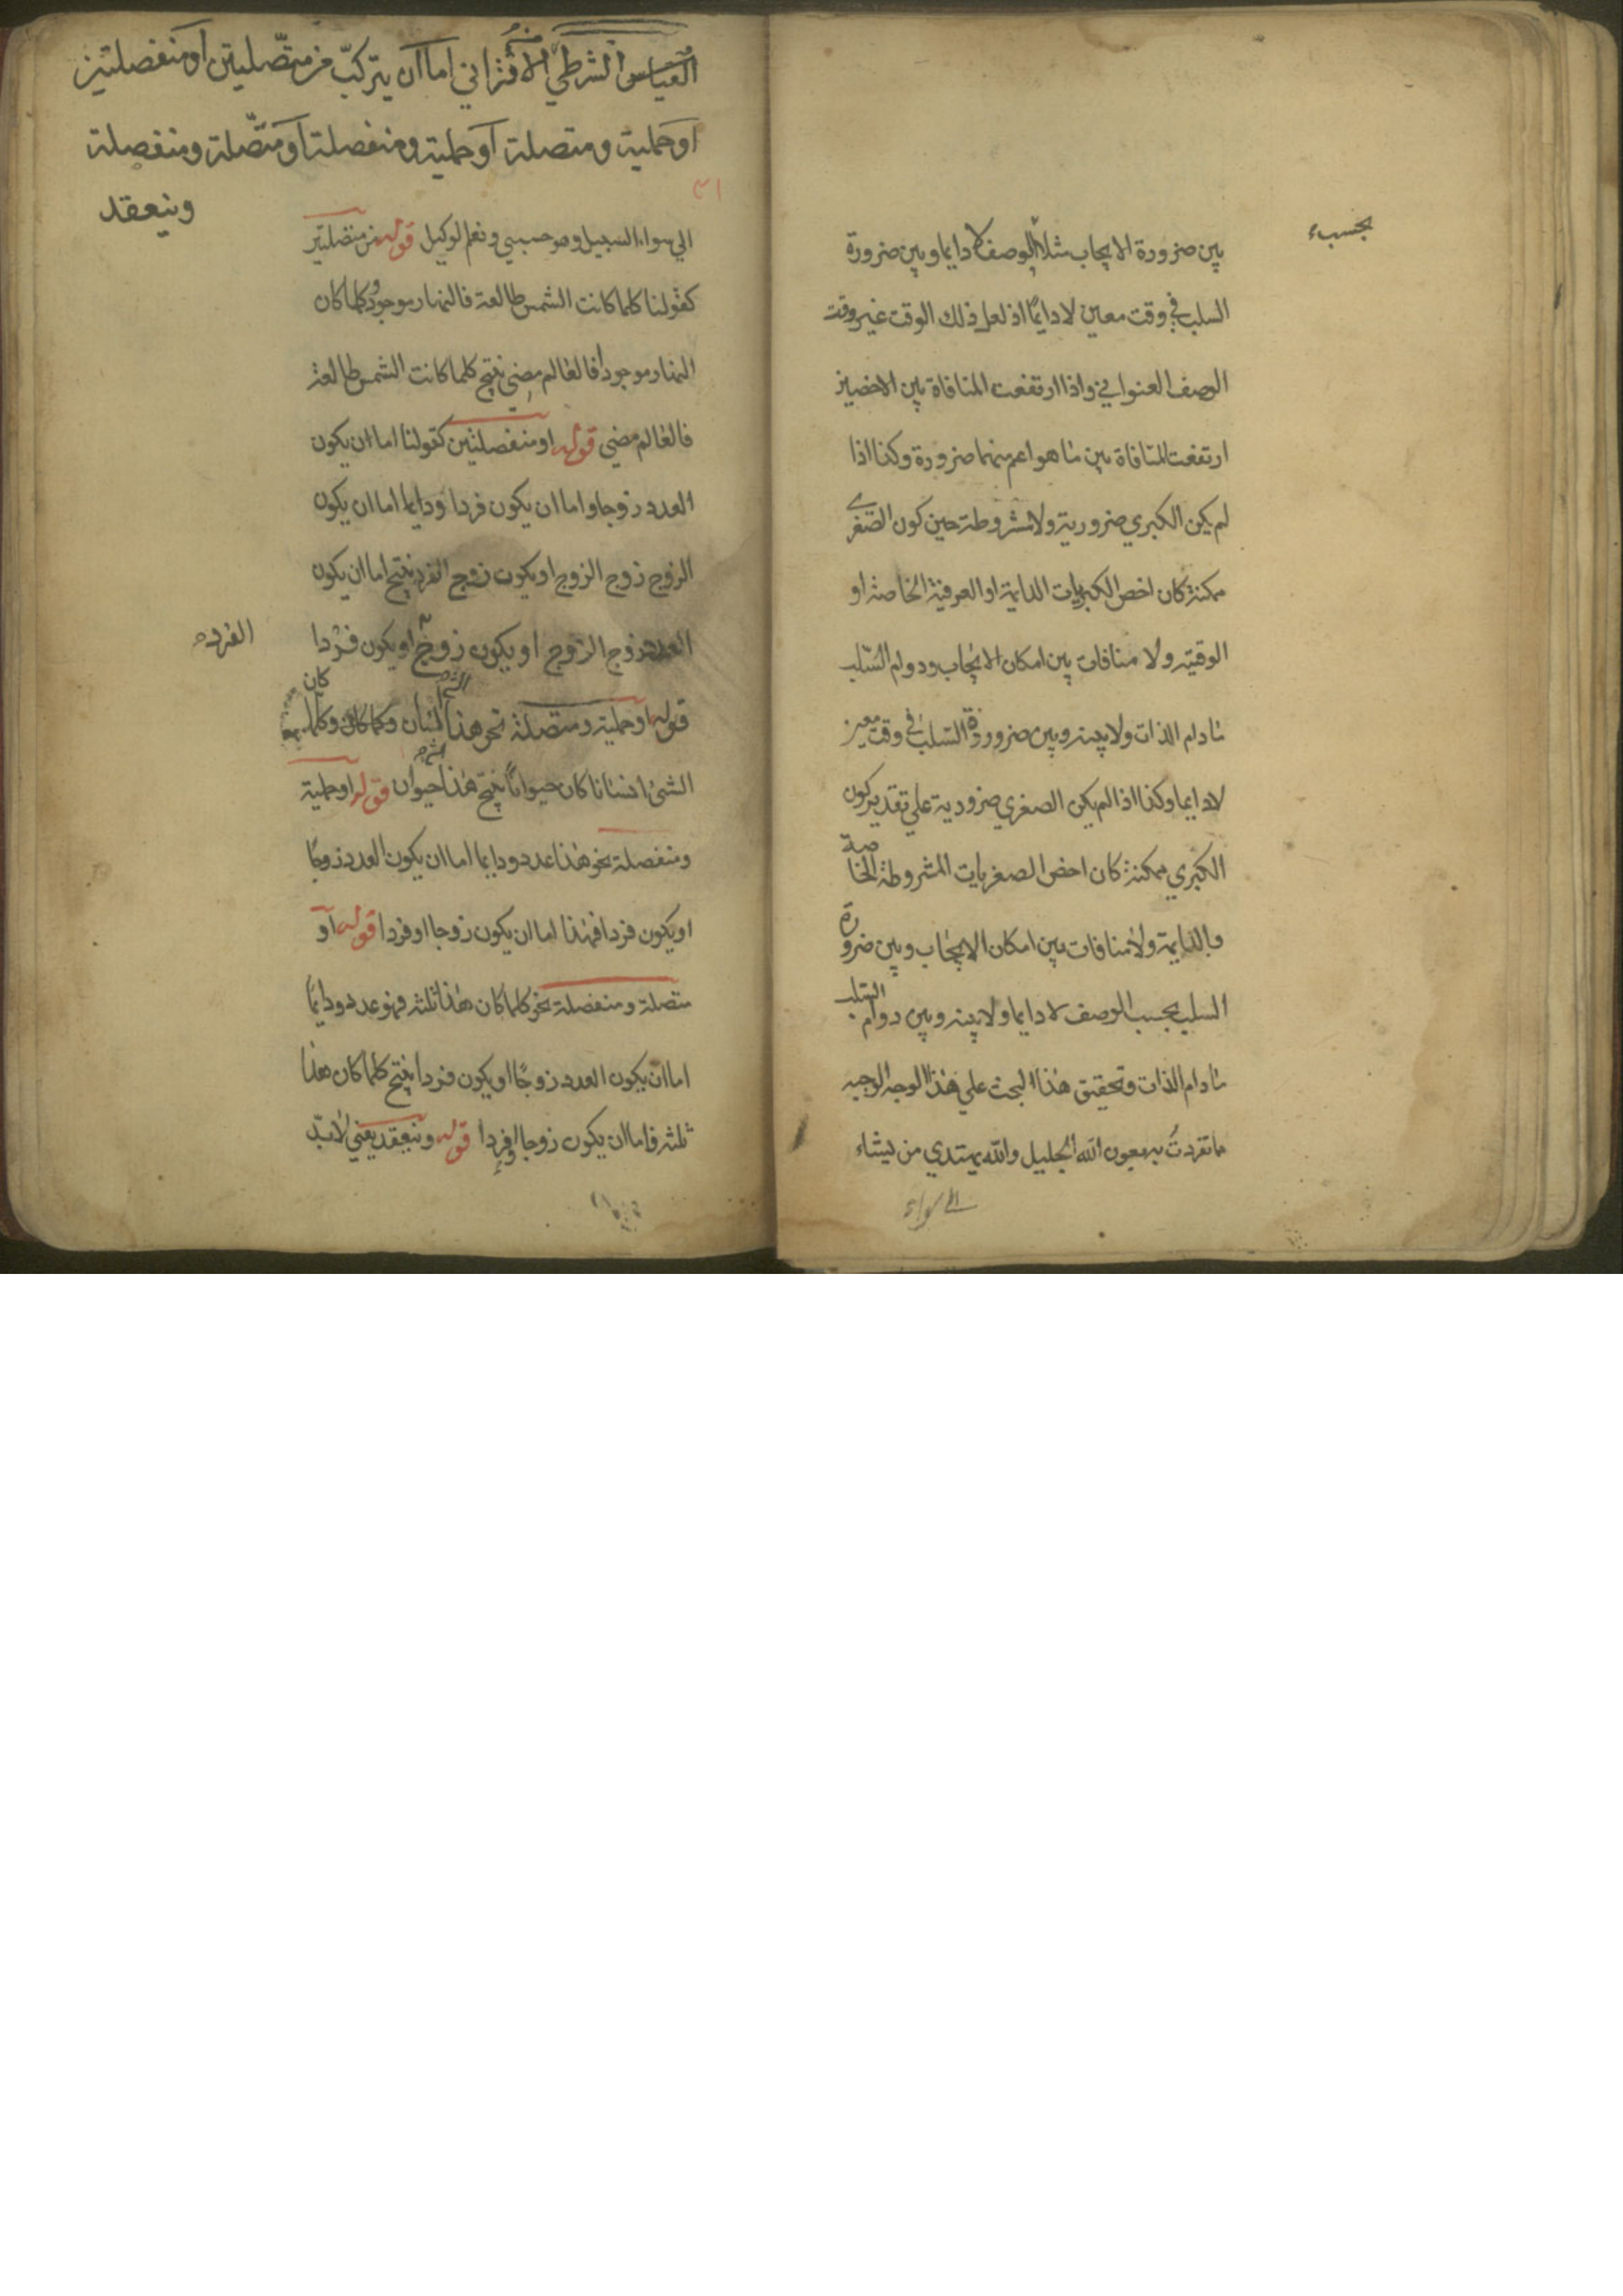 بحسب
بين ضرورة الايجاب مثلا الوصف لا دايما وبين ضرورة
السلب في وقت معين لا دايمًا اذ لعل ذلك الوقت غير وقت
الوصف العنواني واذا ارتفعت المنافاة بين الاخصين
ارتفعت المنافاة بين ما هو اعم منهما ضرورة وكذا اذا
لم يكن الكبري ضرورية ولا مشروطة حين كون الصغري
ممكنة كان اخص الكبريات الدايمة او العرفية الخاصة او
الوقتية ولا منافات بين امكان الايجاب ودوام السلب
مادام الذات ولا بينه وبين ضرورة السلب في وقت معين
لا دايما وكذا اذا لم يكن الصغري ضرورية علي تقدير كون
الكبري ممكنة كان اخص الصغريات المشروطة الخاصة
والدايمة ولا منافات بين امكان الايجاب وبين ضرورة
السلب بحسب الوصف لا دايما ولا بينه وبين دوام السلب
مادام الذات وتحقيق هذا البحث علي هذا الوجه الوجيه
ما تفردت به بعون الله الجليل والله يهتدي من يشاء
الي سواء
القياس الشرطي الاقتراني اما ان يتركب من متصلتين او منفصلتين
او حملية ومتصلة او حملية ومنفصلة او متصلة ومنفصلة
وينعقد
الي سواء السبيل وهو حسبي ونعم الوكيل قوله من متصلتين
كقولنا كلما كانت الشمس طالعة فالنهار موجود وكلما كان
النهار موجودا فالعالم مضي ينتج كلما كانت الشمس طالعة
فالعالم مضي قوله او منفصلتين كقولنا اما ان يكون
العدد زوجا واما ان يكون فردا ودايما اما ان يكون
الزوج زوج الزوج او يكون زوج الفرد ينتج اما ان يكون
العدد زوج الزوج او يكون زوج او يكون فردا
الفرد
قوله او حملية ومتصلة نحو هذا انسان وكلما كان
الشئ انسانا كان حيوانًا ينتج هذا حيوان قوله او حملية
ومنفصلة نحو هذا عدد ودايما اما ان يكون العدد زوجًا
او يكون فردا فهذا اما ان يكون زوجا او فردا قوله او
متصلة ومنفصلة نحو كلما كان هذا ثلثة فهو عدد ودايمًا
اما ان يكون العدد زوجًا او يكون فردا ينتج كلما كان هذا
ثلثة فاما ان يكون زوجا او فردا قوله وينعقد يعني لابد